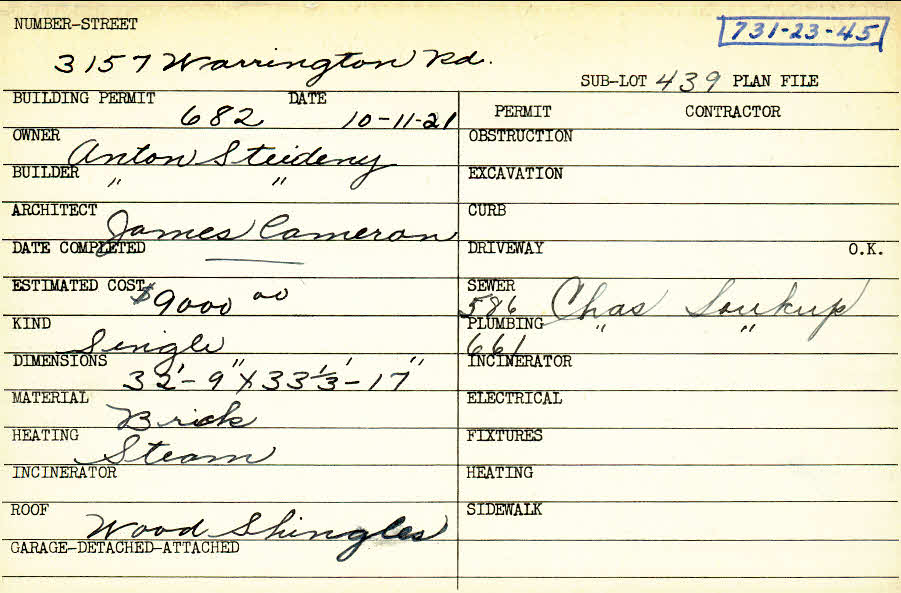 NUMBER-STREET
731-23-45
3157 Warrington Rd.
SUB-LOT 439 PLAN FILE
BUILDING PERMIT DATE
682 10-11-21
PERMIT CONTRACTOR
OWNER
Anton
OBSTRUCTION
BUILDER
" "
EXCAVATION
ARCHITECT
James Cameron
CURB
DATE COMPLETED
DRIVEWAY O.K.
ESTIMATED COST
$9000 00
SEWER
586 Chas Soukup
KIND
Single
PLUMBING
661 " "
DIMENSIONS
32'-9" X 33 1/3'-17"
INCINERATOR
MATERIAL
Brick
ELECTRICAL
HEATING
Steam
FIXTURES
INCINERATOR
HEATING
ROOF
Wood Shingles
SIDEWALK
GARAGE-DETACHED-ATTACHED